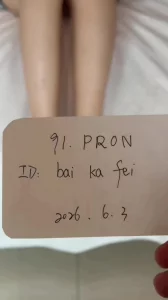 91. PRON
ID: bai ka fei
2026. 6. 3